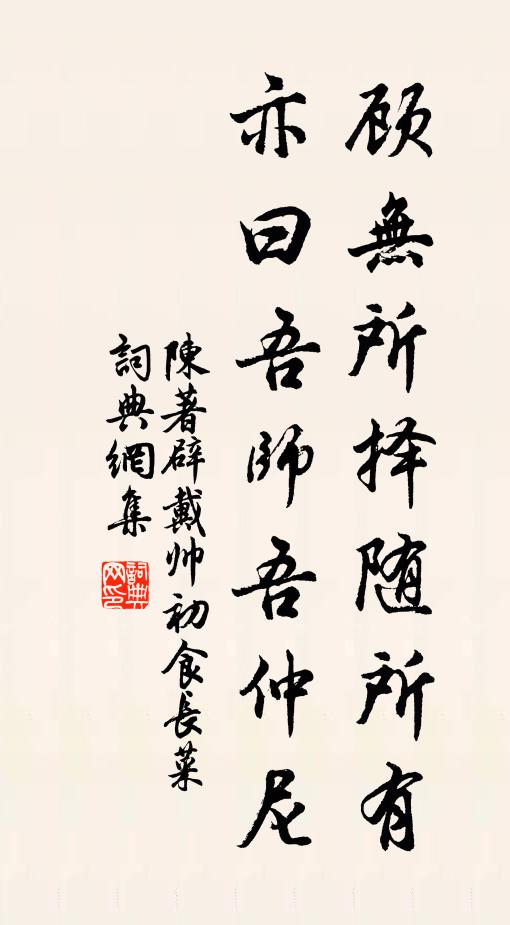 顾無所择随所有
亦曰吾師吾仲尼
陳著辟戴帅初食長菜
詞典網集
詞典网印